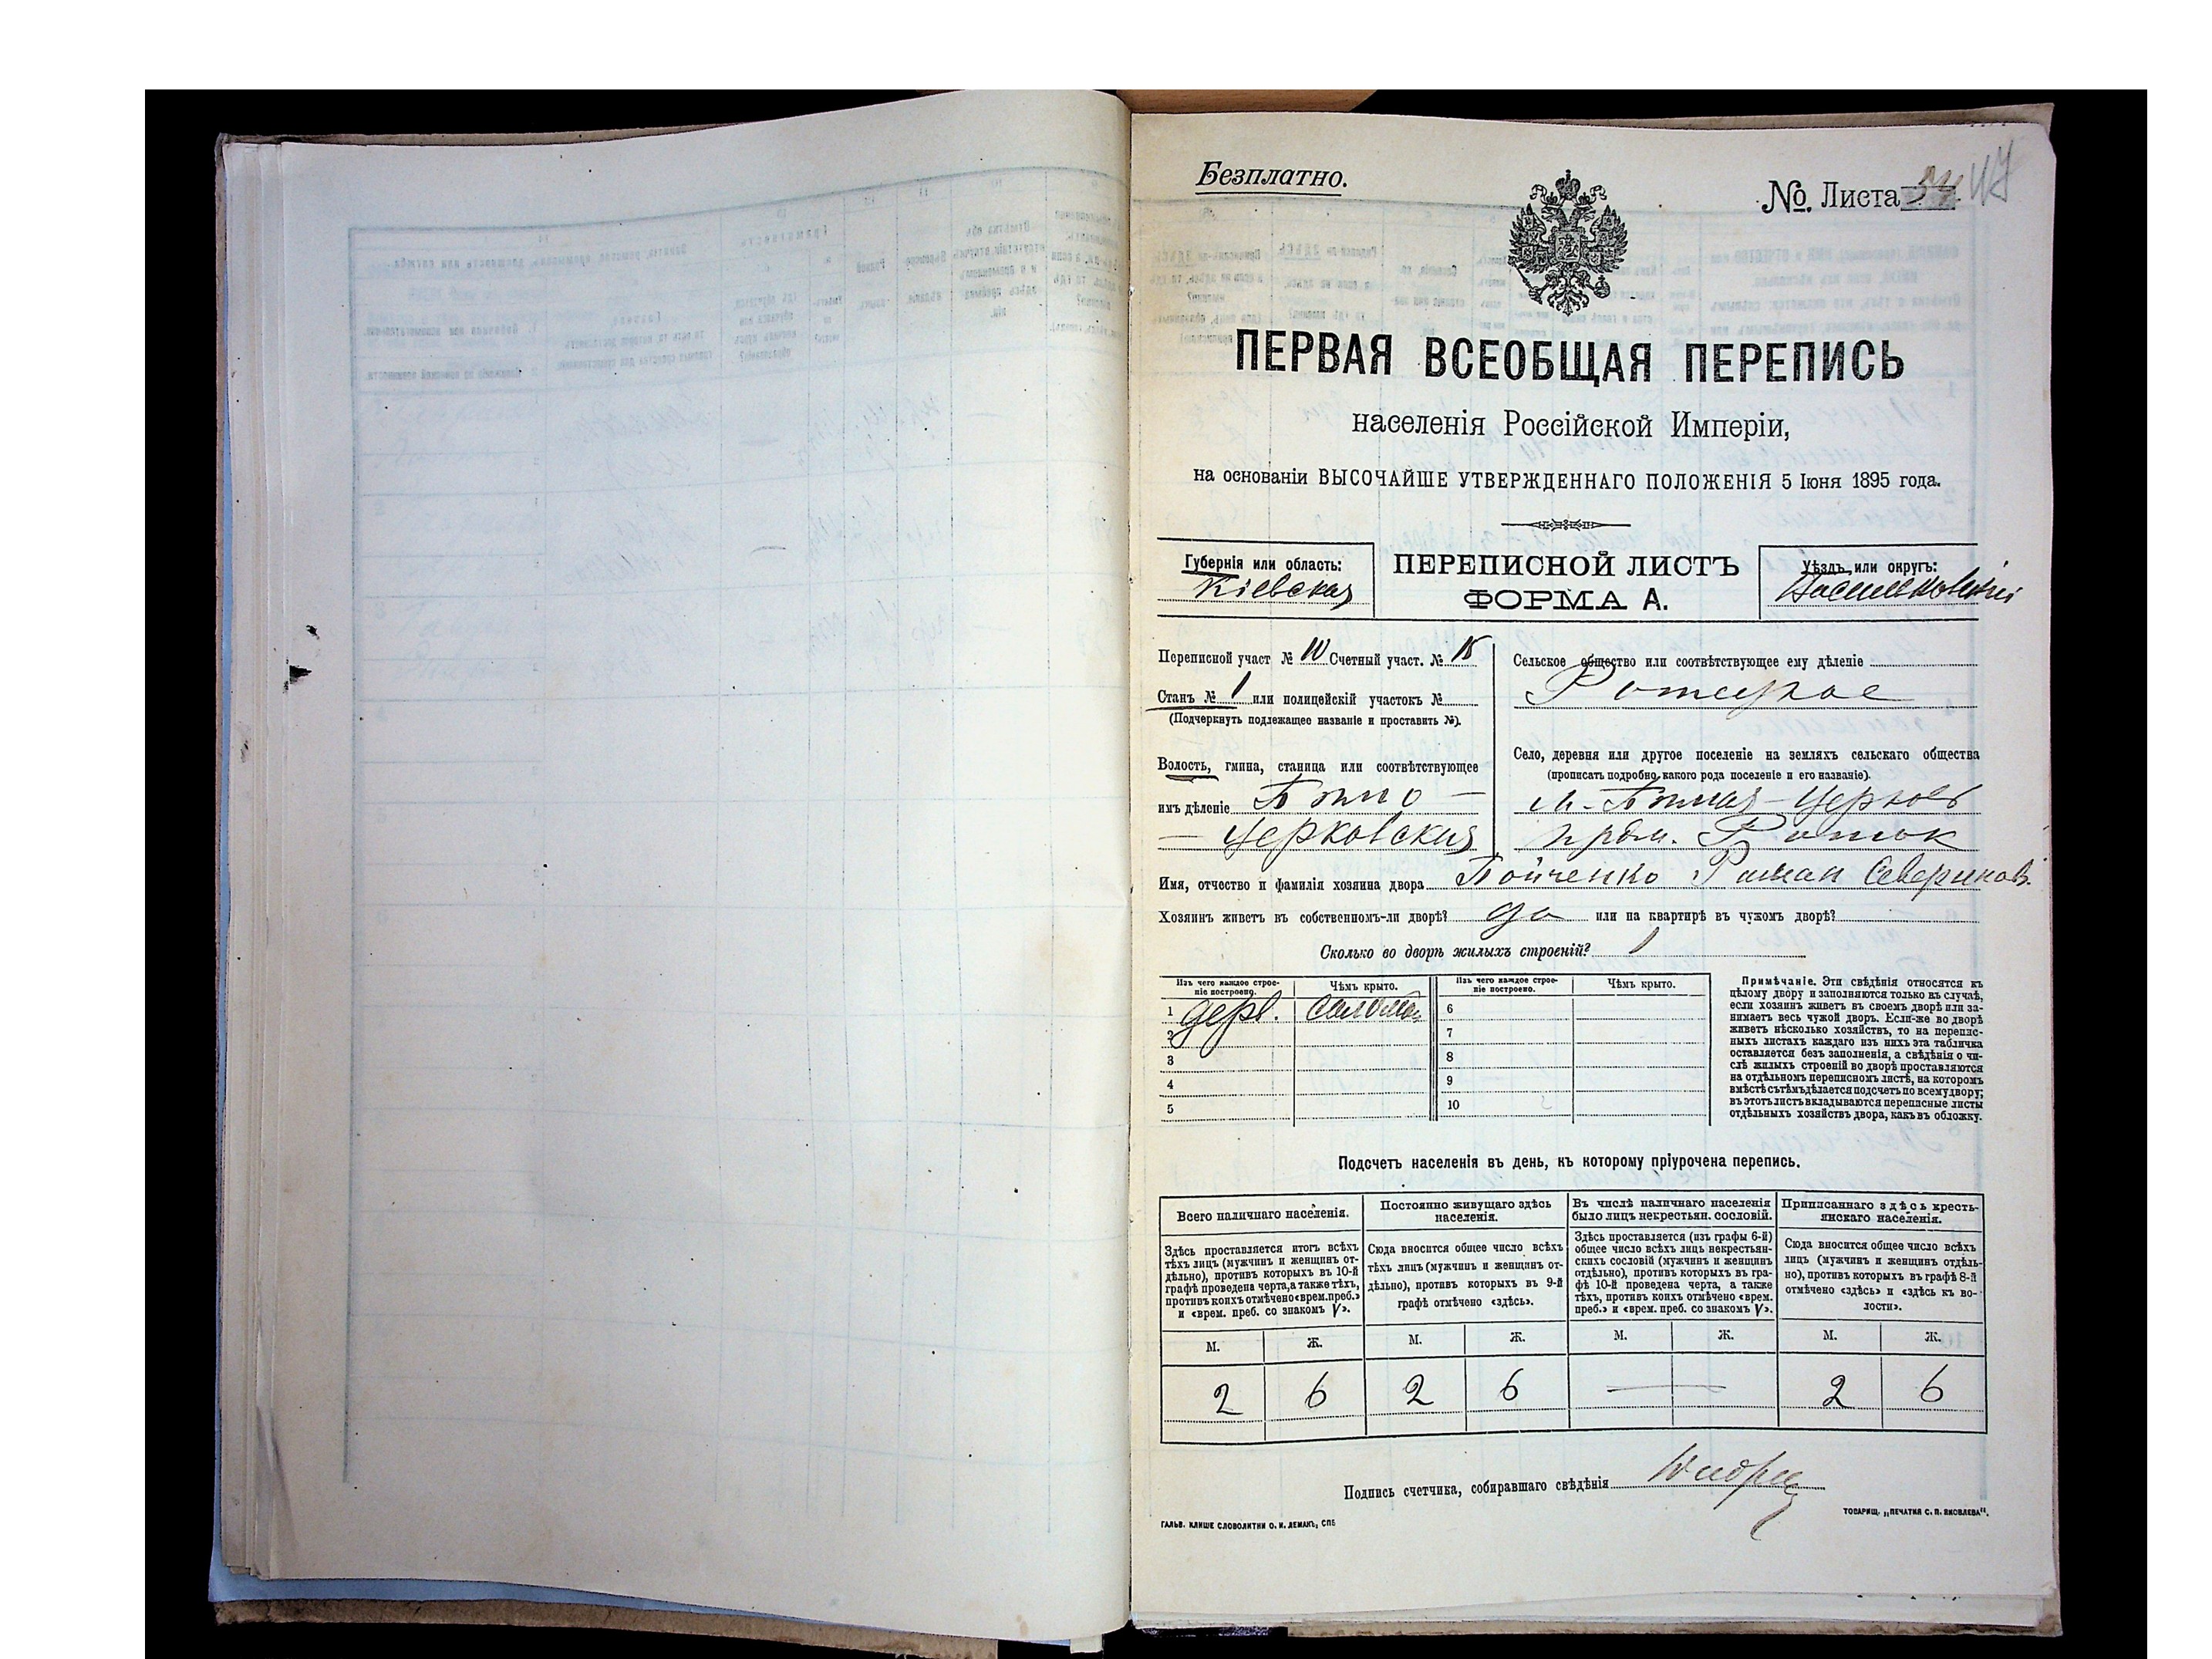 Безплатно.
№ Листа 47
ПЕРВАЯ ВСЕОБЩАЯ ПЕРЕПИСЬ
населенія Россійской Имперіи,
на основаніи ВЫСОЧАЙШЕ УТВЕРЖДЕННАГО ПОЛОЖЕНІЯ 5 Іюня 1895 года.
Губернія или область:
Кіевская
ПЕРЕПИСНОЙ ЛИСТЪ
ФОРМА А.
Уѣздъ или округъ:
Васильковскій
Переписной участ № 10 Счетный участ. № 15
Станъ № 1 или полицейскій участокъ №
(Подчеркнуть подлежащее названіе и проставить №).
Волость, гмина, станица или соотвѣтствующее
имъ дѣленіе Бѣло –
– Церковская
Сельское общество или соотвѣтствующее ему дѣленіе
Ротцкое
Село, деревня или другое поселеніе на земляхъ сельскаго общества
(прописать подробно, какого рода поселеніе и его названіе).
м. Бѣлая – Церковь
прдм. Роток
Имя, отчество и фамилія хозяина двора Бойченко Роман Северинов.
Хозяинъ живетъ въ собственномъ-ли дворѣ? да или на квартирѣ въ чужомъ дворѣ?
Сколько во дворѣ жилыхъ строеній? 1
Изъ чего каждое строеніе построено.
Чѣмъ крыто.
Изъ чего каждое строеніе построено.
Чѣмъ крыто.
1 дерв. соломой
2
3
4
5
6
7
8
9
10
Примѣчаніе. Эти свѣдѣнія относятся къ
цѣлому двору и заполняются только въ случаѣ,
если хозяинъ живетъ въ своемъ дворѣ или за-
нимаетъ весь чужой дворъ. Если-же во дворѣ
живетъ нѣсколько хозяйствъ, то на перепис-
ныхъ листахъ каждаго изъ нихъ эта табличка
оставляется безъ заполненія, а свѣдѣнія о чи-
слѣ жилыхъ строеній во дворѣ проставляются
на отдѣльномъ переписномъ листѣ, на которомъ
вмѣстѣ съ тѣмъ дѣлается подсчетъ по всему двору;
въ этотъ листъ вкладываются переписные листы
отдѣльныхъ хозяйствъ двора, какъ въ обложку.
Подсчетъ населенія въ день, къ которому пріурочена перепись.
Всего наличнаго населенія.
Здѣсь проставляется итогъ всѣхъ
тѣхъ лицъ (мужчинъ и женщинъ от-
дѣльно), противъ которыхъ въ 10-й
графѣ проведена черта, а также тѣхъ,
противъ коихъ отмѣчено «врем. преб.»
и «врем. преб. со знакомъ V».
Постоянно живущаго здѣсь
населенія.
Сюда вносится общее число всѣхъ
тѣхъ лицъ (мужчинъ и женщинъ от-
дѣльно), противъ которыхъ въ 9-й
графѣ отмѣчено «здѣсь».
Въ числѣ наличнаго населенія
было лицъ некрестьян. сословій.
Здѣсь проставляется (изъ графы 6-й)
общее число всѣхъ лицъ некрестьян-
скихъ сословій (мужчинъ и женщинъ
отдѣльно), противъ которыхъ въ гра-
фѣ 10-й проведена черта, а также
тѣхъ, противъ коихъ отмѣчено «врем.
преб.» и «врем. преб. со знакомъ V».
Приписаннаго здѣсь кресть-
янскаго населенія.
Сюда вносится общее число всѣхъ
лицъ (мужчинъ и женщинъ отдѣль-
но), противъ которыхъ въ графѣ 8-й
отмѣчено «здѣсь» и «здѣсь къ во-
лости».
М. Ж. М. Ж. М. Ж. М. Ж.
2 6 2 6 — 2 6
Подпись счетчика, собиравшаго свѣдѣнія
ГАЛЬВ. КЛИШЕ СЛОВОЛИТНИ О. И. ЛЕМАНЪ, СПБ
ТОВАРИЩ. „ПЕЧАТНЯ С. П. ЯКОВЛЕВА“.